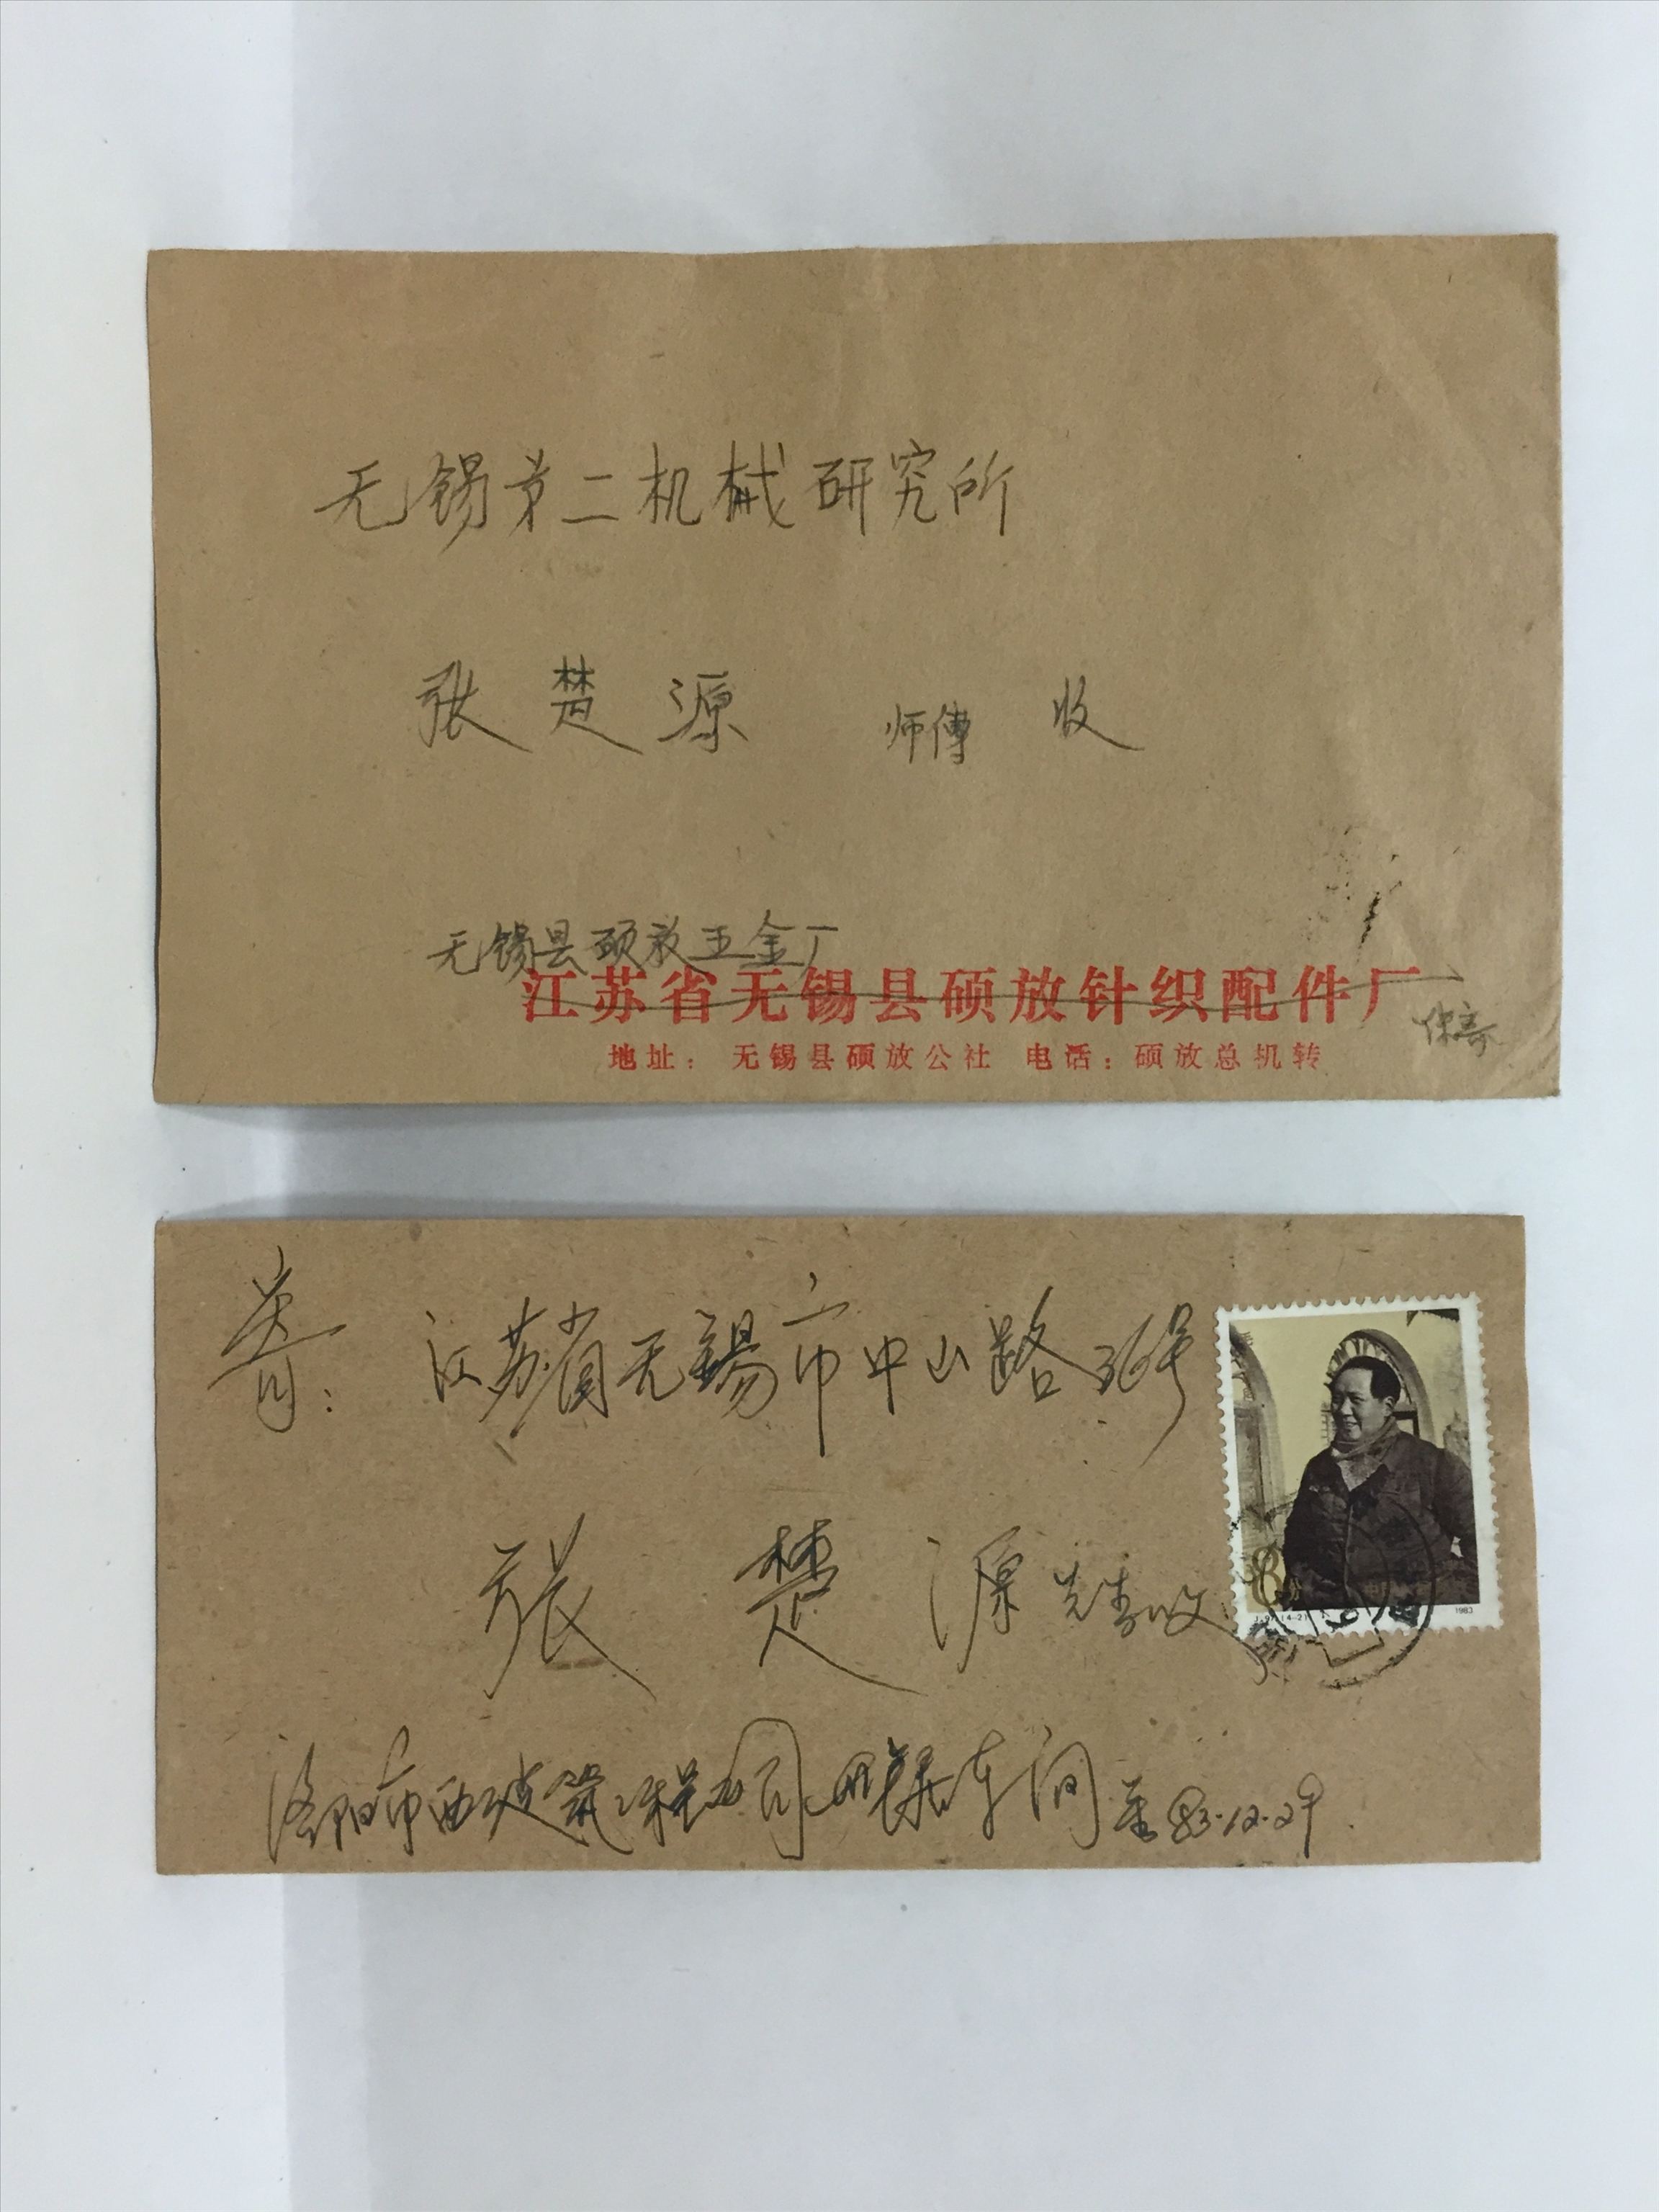 无锡第二机械研究所
张楚源 师傅 收
无锡县硕放五金厂
江苏省无锡县硕放针织配件厂
地址：无锡县硕放公社 电话：硕放总机转
寄：江苏省无锡市中山路 号
张楚源先生收
8分
J.97.(4-2)
1983
洛阳市 建筑工程公司 车间 83.12.29